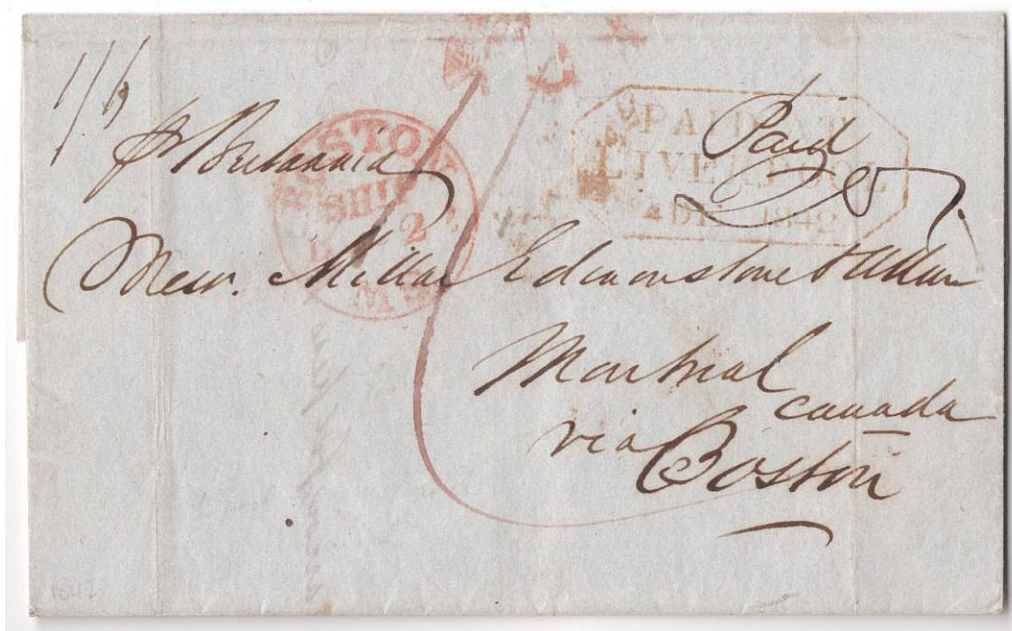 1/
Paid
pr Britannia
PAID AT
LIVERPOOL
DE 1842
BOSTON
SHIP
MS
Messrs. Millar Edmonstone & Allan
Montreal
Canada
via
Boston
1842